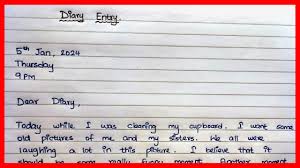 Diary Entry
5th Jan, 2024
Thursday
9 PM
Dear Diary,
Today while I was cleaning my cupboard, I want some
old pictures of me and my sisters. We all were
laughing a lot in this picture. I believe that it
should be some really funny moment. Another some